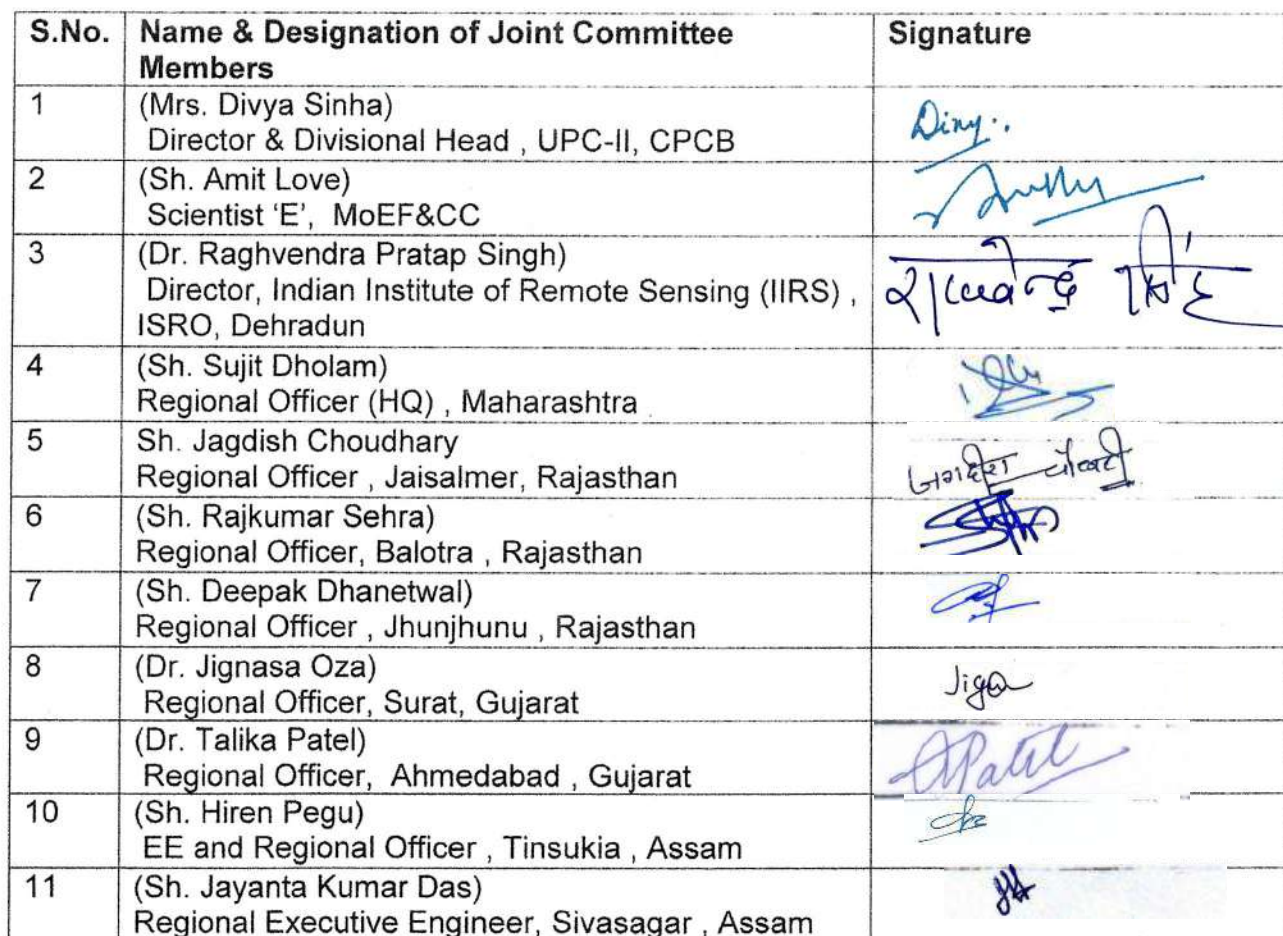 S.No. Name & Designation of Joint Committee Members Signature
1 (Mrs. Divya Sinha)
Director & Divisional Head , UPC-II, CPCB
2 (Sh. Amit Love)
Scientist ‘E’, MoEF&CC
3 (Dr. Raghvendra Pratap Singh)
Director, Indian Institute of Remote Sensing (IIRS) ,
ISRO, Dehradun
4 (Sh. Sujit Dholam)
Regional Officer (HQ) , Maharashtra
5 Sh. Jagdish Choudhary
Regional Officer , Jaisalmer, Rajasthan
जगदीश चौधरी
6 (Sh. Rajkumar Sehra)
Regional Officer, Balotra , Rajasthan
7 (Sh. Deepak Dhanetwal)
Regional Officer , Jhunjhunu , Rajasthan
8 (Dr. Jignasa Oza)
Regional Officer, Surat, Gujarat
9 (Dr. Talika Patel)
Regional Officer, Ahmedabad , Gujarat
Patel
10 (Sh. Hiren Pegu)
EE and Regional Officer , Tinsukia , Assam
11 (Sh. Jayanta Kumar Das)
Regional Executive Engineer, Sivasagar , Assam